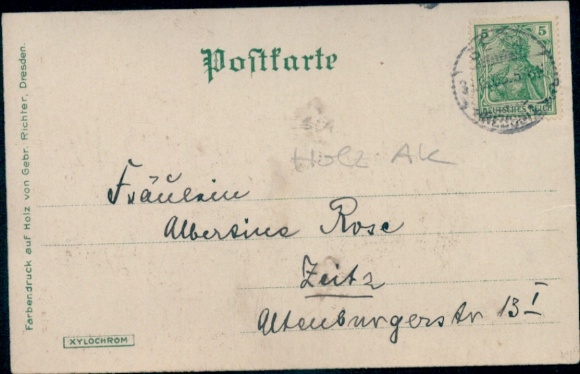 Postkarte
5 5
DEUTSCHES REICH
Holz AK
Fräulein
Albersine Rose
Zeitz
Altenburgerstr 13 I
Farbendruck auf Holz von Gebr. Richter, Dresden.
XYLOCHROM